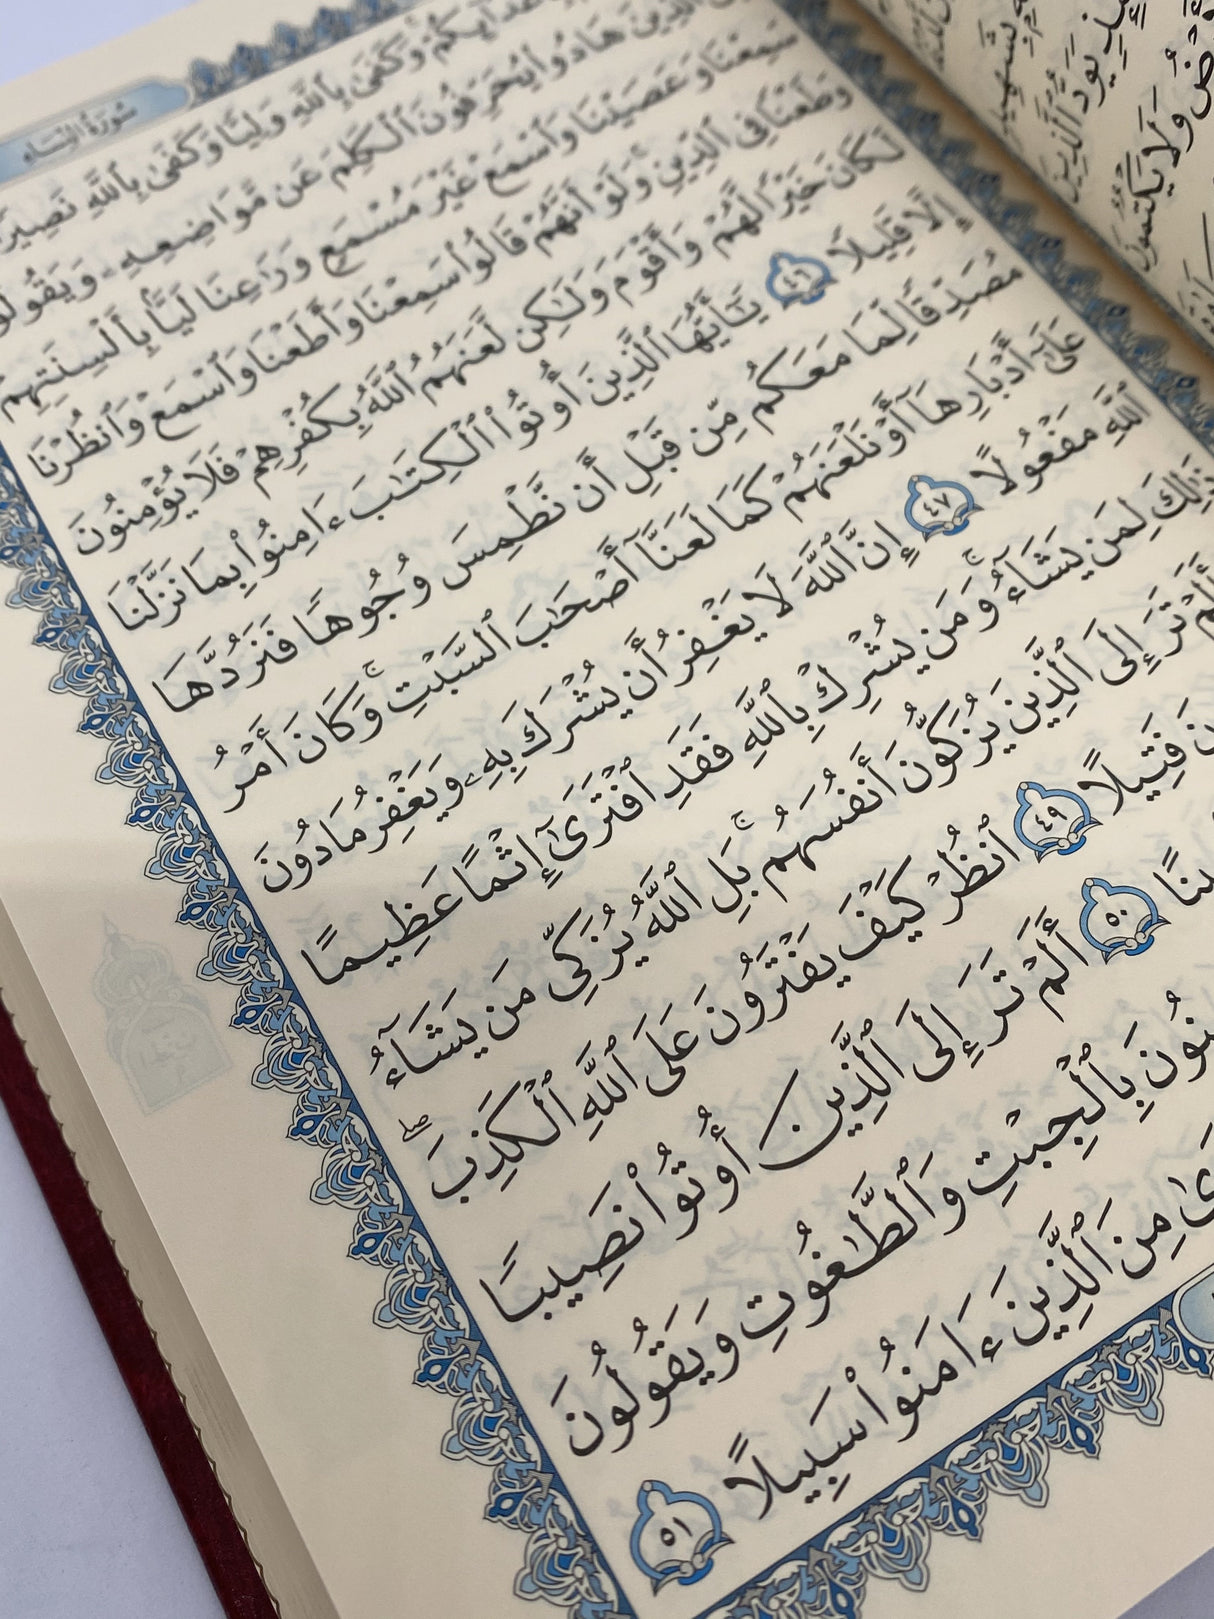 سُورَةُ النِّسَاءِ
بِأَعْدَآئِكُمْ وَكَفَىٰ بِٱللَّهِ وَلِيًّا وَكَفَىٰ بِٱللَّهِ نَصِيرًا
ٱلَّذِينَ هَادُوا۟ يُحَرِّفُونَ ٱلْكَلِمَ عَن مَّوَاضِعِهِۦ وَيَقُولُونَ
سَمِعْنَا وَعَصَيْنَا وَٱسْمَعْ غَيْرَ مُسْمَعٍ وَرَٰعِنَا لَيًّۢا بِأَلْسِنَتِهِمْ
وَطَعْنًا فِى ٱلدِّينِ ۚ وَلَوْ أَنَّهُمْ قَالُوا۟ سَمِعْنَا وَأَطَعْنَا وَٱسْمَعْ وَٱنظُرْنَا
لَكَانَ خَيْرًا لَّهُمْ وَأَقْوَمَ وَلَٰكِن لَّعَنَهُمُ ٱللَّهُ بِكُفْرِهِمْ فَلَا يُؤْمِنُونَ
إِلَّا قَلِيلًا ٤٦ يَٰٓأَيُّهَا ٱلَّذِينَ أُوتُوا۟ ٱلْكِتَٰبَ ءَامِنُوا۟ بِمَا نَزَّلْنَا
مُصَدِّقًا لِّمَا مَعَكُم مِّن قَبْلِ أَن نَّطْمِسَ وُجُوهًا فَنَرُدَّهَا
عَلَىٰٓ أَدْبَارِهَآ أَوْ نَلْعَنَهُمْ كَمَا لَعَنَّآ أَصْحَٰبَ ٱلسَّبْتِ ۚ وَكَانَ أَمْرُ
ٱللَّهِ مَفْعُولًا ٤٧ إِنَّ ٱللَّهَ لَا يَغْفِرُ أَن يُشْرَكَ بِهِۦ وَيَغْفِرُ مَا دُونَ
ذَٰلِكَ لِمَن يَشَآءُ ۚ وَمَن يُشْرِكْ بِٱللَّهِ فَقَدِ ٱفْتَرَىٰٓ إِثْمًا عَظِيمًا
أَلَمْ تَرَ إِلَى ٱلَّذِينَ يُزَكُّونَ أَنفُسَهُم ۚ بَلِ ٱللَّهُ يُزَكِّى مَن يَشَآءُ
فَتِيلًا ٤٩ ٱنظُرْ كَيْفَ يَفْتَرُونَ عَلَى ٱللَّهِ ٱلْكَذِبَ ۖ
٥٠ أَلَمْ تَرَ إِلَى ٱلَّذِينَ أُوتُوا۟ نَصِيبًا
بِٱلْجِبْتِ وَٱلطَّٰغُوتِ وَيَقُولُونَ
مِنَ ٱلَّذِينَ ءَامَنُوا۟ سَبِيلًا ٥١